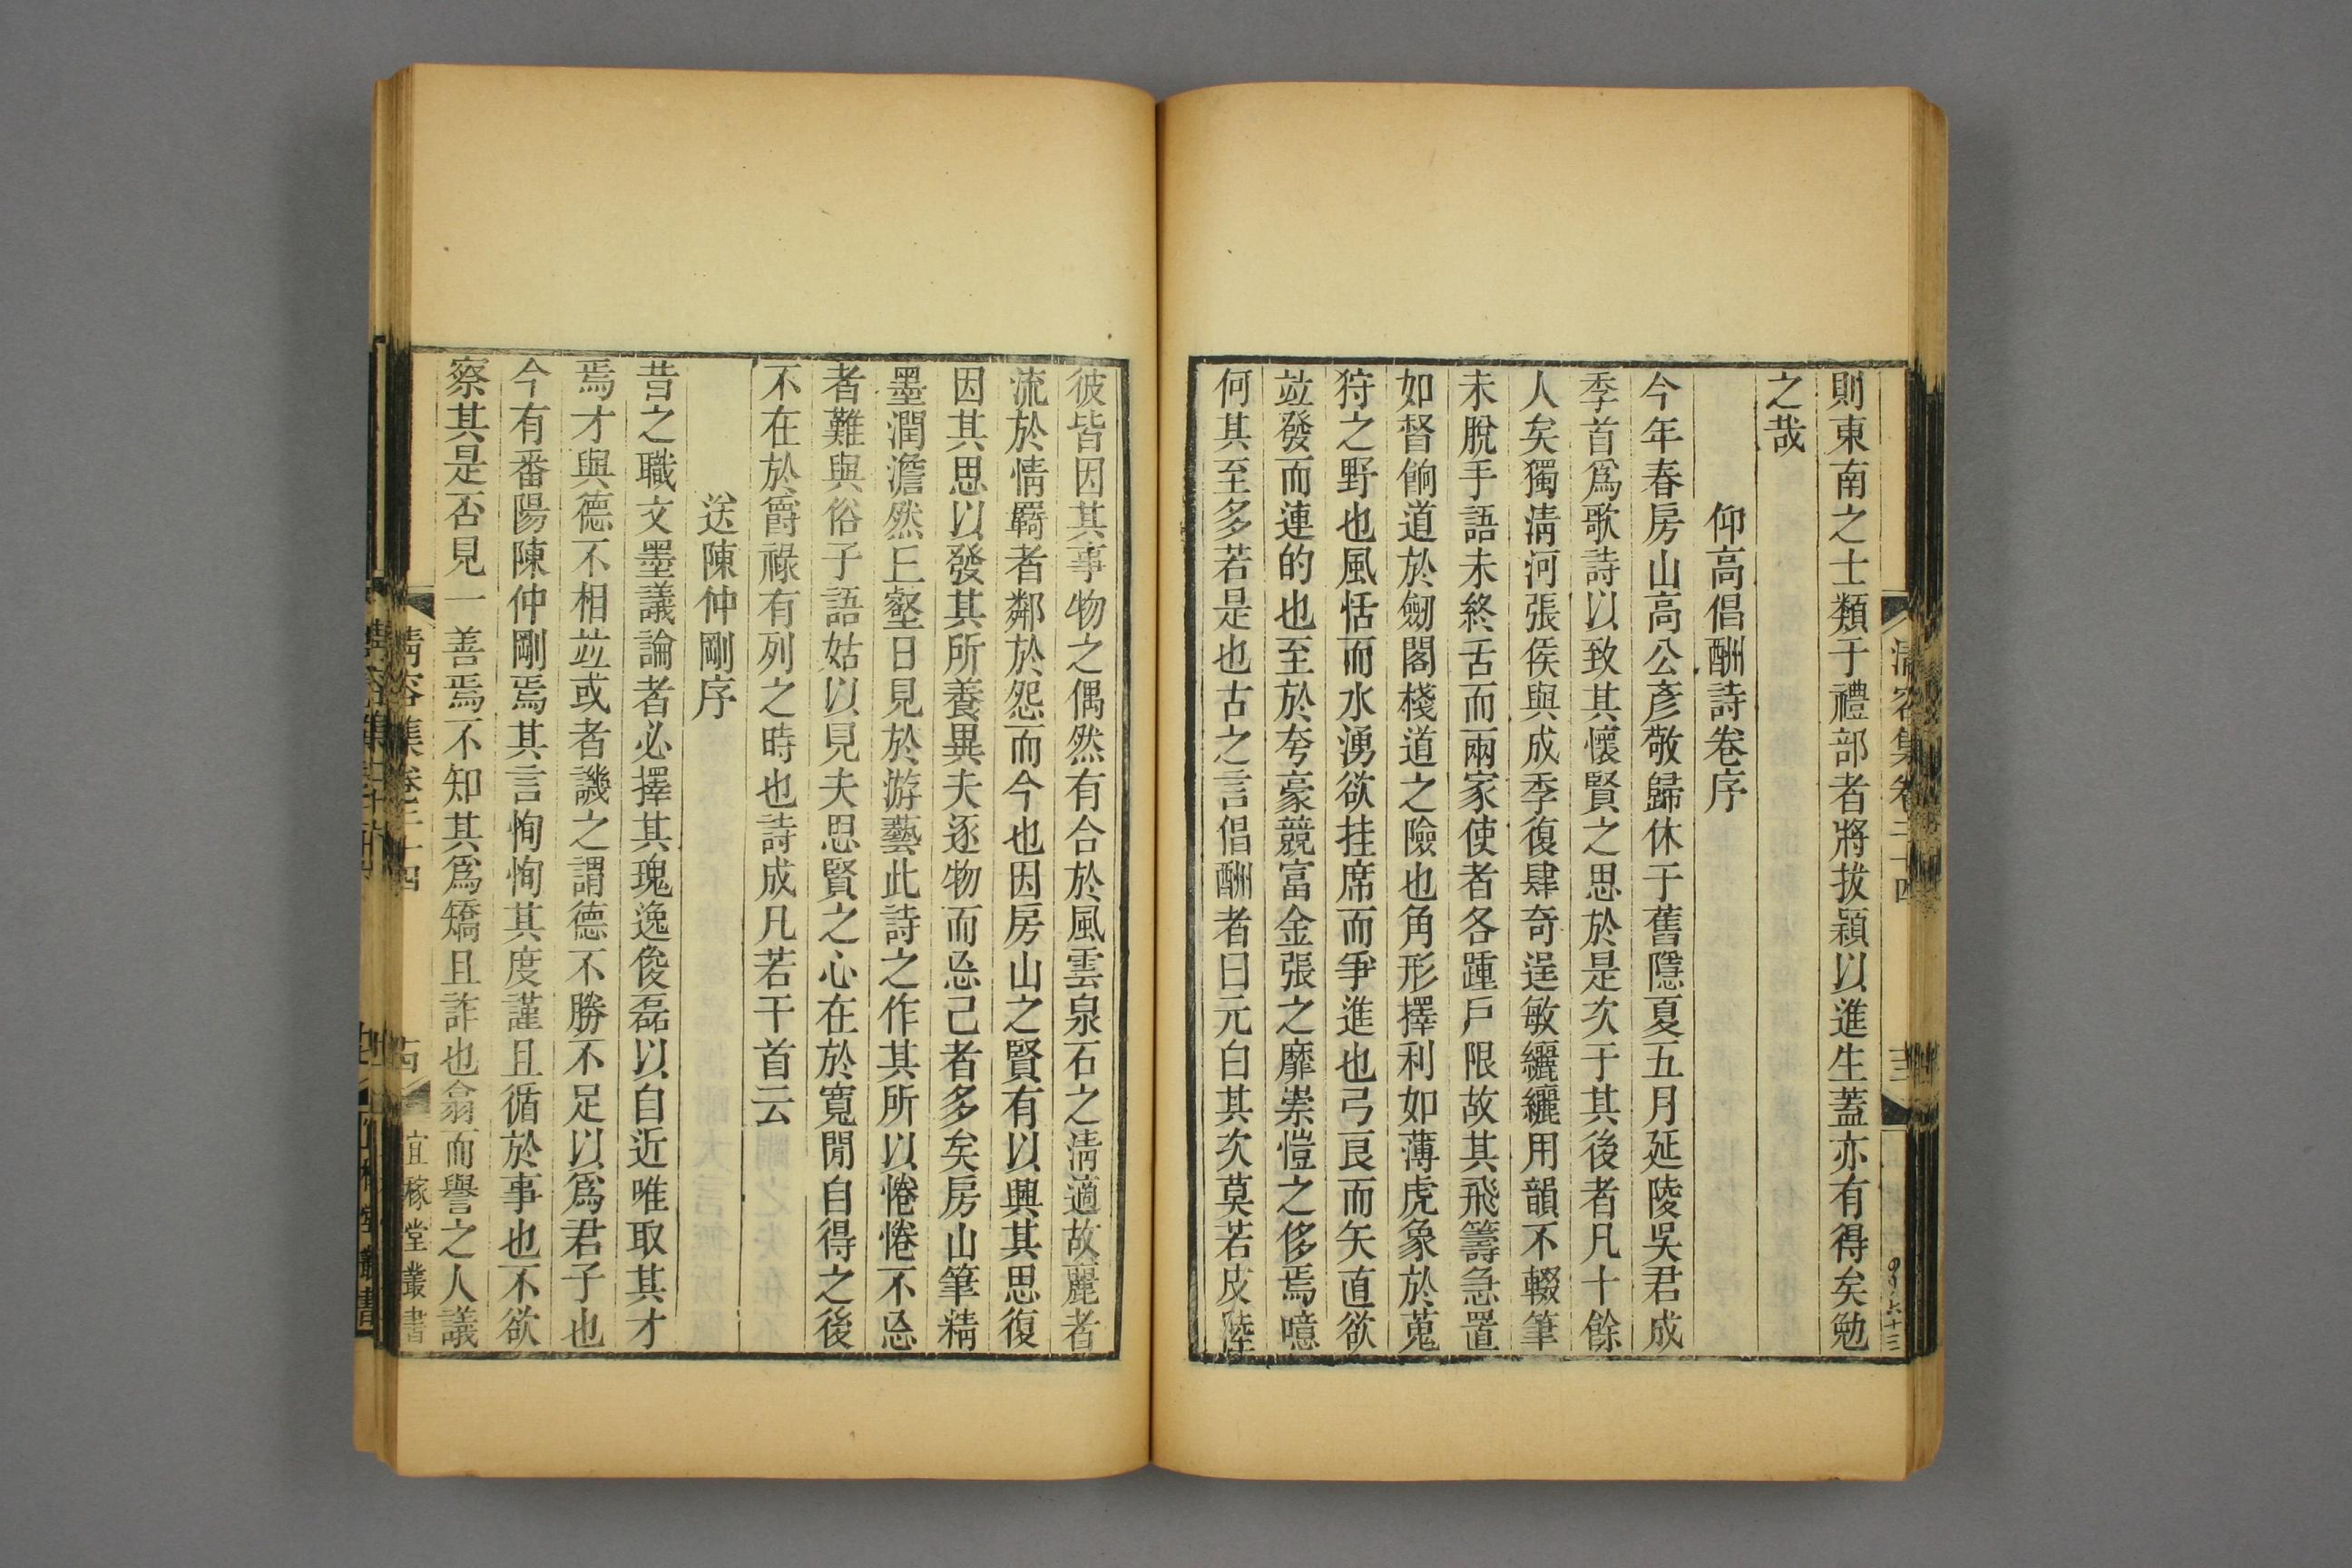 清容集卷二十四
三
則東南之士類于禮部者將拔穎以進生蓋亦有得矣勉
之哉
仰高倡酬詩卷序
今年春房山高公彥敬歸休于舊隱夏五月延陵吳君成
季首爲歌詩以致其懷賢之思於是次于其後者凡十餘
人矣獨淸河張侯與成季復肆奇逞敏纚纚用韻不輟筆
未脫手語未終舌而兩家使者各踵戶限故其飛籌急置
如督餉道於劒閣棧道之險也角形擇利如薄虎象於蒐
狩之野也風恬而水湧欲挂席而爭進也弓良而矢直欲
竝發而連的也至於夸豪競富金張之靡崇愷之侈焉噫
何其至多若是也古之言倡酬者曰元白其次莫若皮陸
彼皆因其事物之偶然有合於風雲泉石之淸適故麗者
流於情羇者鄰於怨而今也因房山之賢有以興其思復
因其思以發其所養異夫逐物而忘己者多矣房山筆精
墨潤澹然丘壑日見於游藝此詩之作其所以惓惓不忘
者難與俗子語姑以見夫思賢之心在於寬閒自得之後
不在於爵祿有列之時也詩成凡若干首云
送陳仲剛序
昔之職文墨議論者必擇其瑰逸俊磊以自近唯取其才
焉才與德不相竝或者譏之謂德不勝不足以爲君子也
今有番陽陳仲剛焉其言恂恂其度謹且循於事也不欲
察其是否見一善焉不知其爲矯且詐也翕而譽之人議
清容集卷二十四
宜稼堂叢書